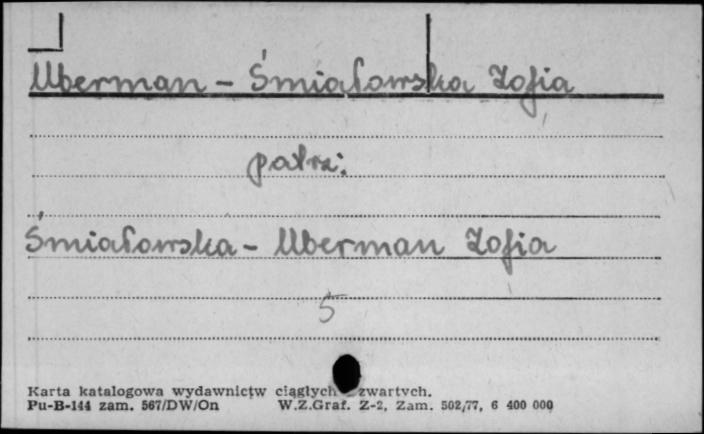 Uberman - Śmiałowska Zofia
patrz:
Śmiałowska - Uberman Zofia
5
Karta katalogowa wydawnictw ciągłych zwartych.
Pu-B-144 zam. 567/DW/On W.Z.Graf. Z-2, Zam. 502/77, 6 400 000